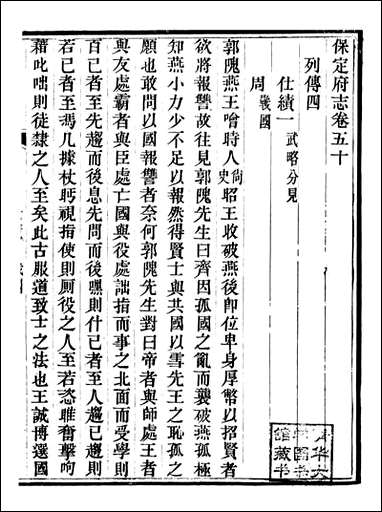 保定府志卷五十
列傳四
仕績一 武略分見
周 戰國
郭隗燕王噲時人尙史昭王收破燕後卽位卑身厚幣以招賢者
欲將報讐故往見郭隗先生曰齊因孤國之亂而襲破燕孤極
知燕小力少不足以報然得賢士與共國以雪先王之恥孤之
願也敢問以國報讐者奈何郭隗先生對曰帝者與師處王者
與友處霸者與臣處亡國與役處詘指而事之北面而受學則
百己者至先趨而後息先問而後嘿則什己者至人趨己趨則
若己者至馮几據杖眄視指使則厮役之人至若恣睢奮擊呴
藉叱咄則徒隸之人至矣此古服道致士之法也王誠博選國
清华大
学图书
館藏书